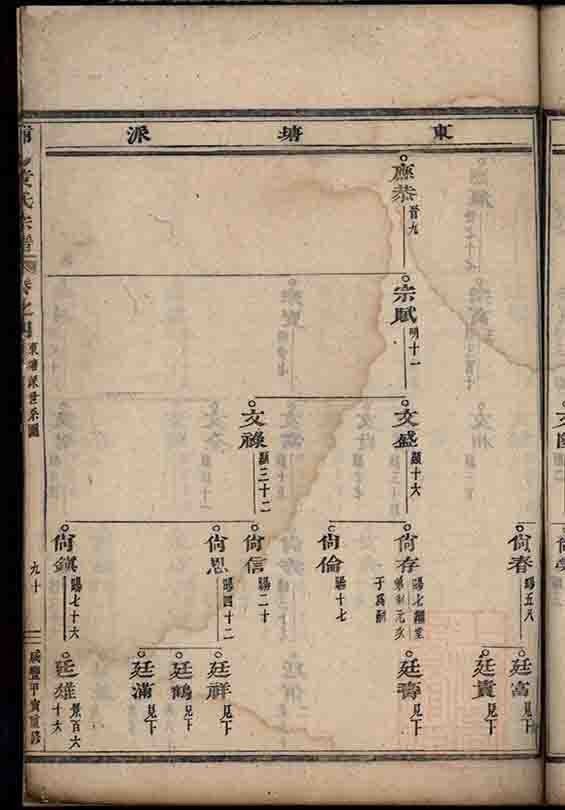 東塘派
應恭
晉九
宗賦
明十一
文盛
顯十六
文祿
顯三十二
尙春
賜五八
尙存
賜七
元亥
于爲嗣
尙倫
賜十七
尙信
賜二十
尙恩
賜四十二
尙鎮
賜七十六
廷富
見下
廷貴
見下
廷壽
見下
廷祥
見下
廷鶴
見下
廷滿
見下
廷雄
景百六十六
氏宗譜
卷之四
東塘派世系圖
九十
咸豐甲寅重修